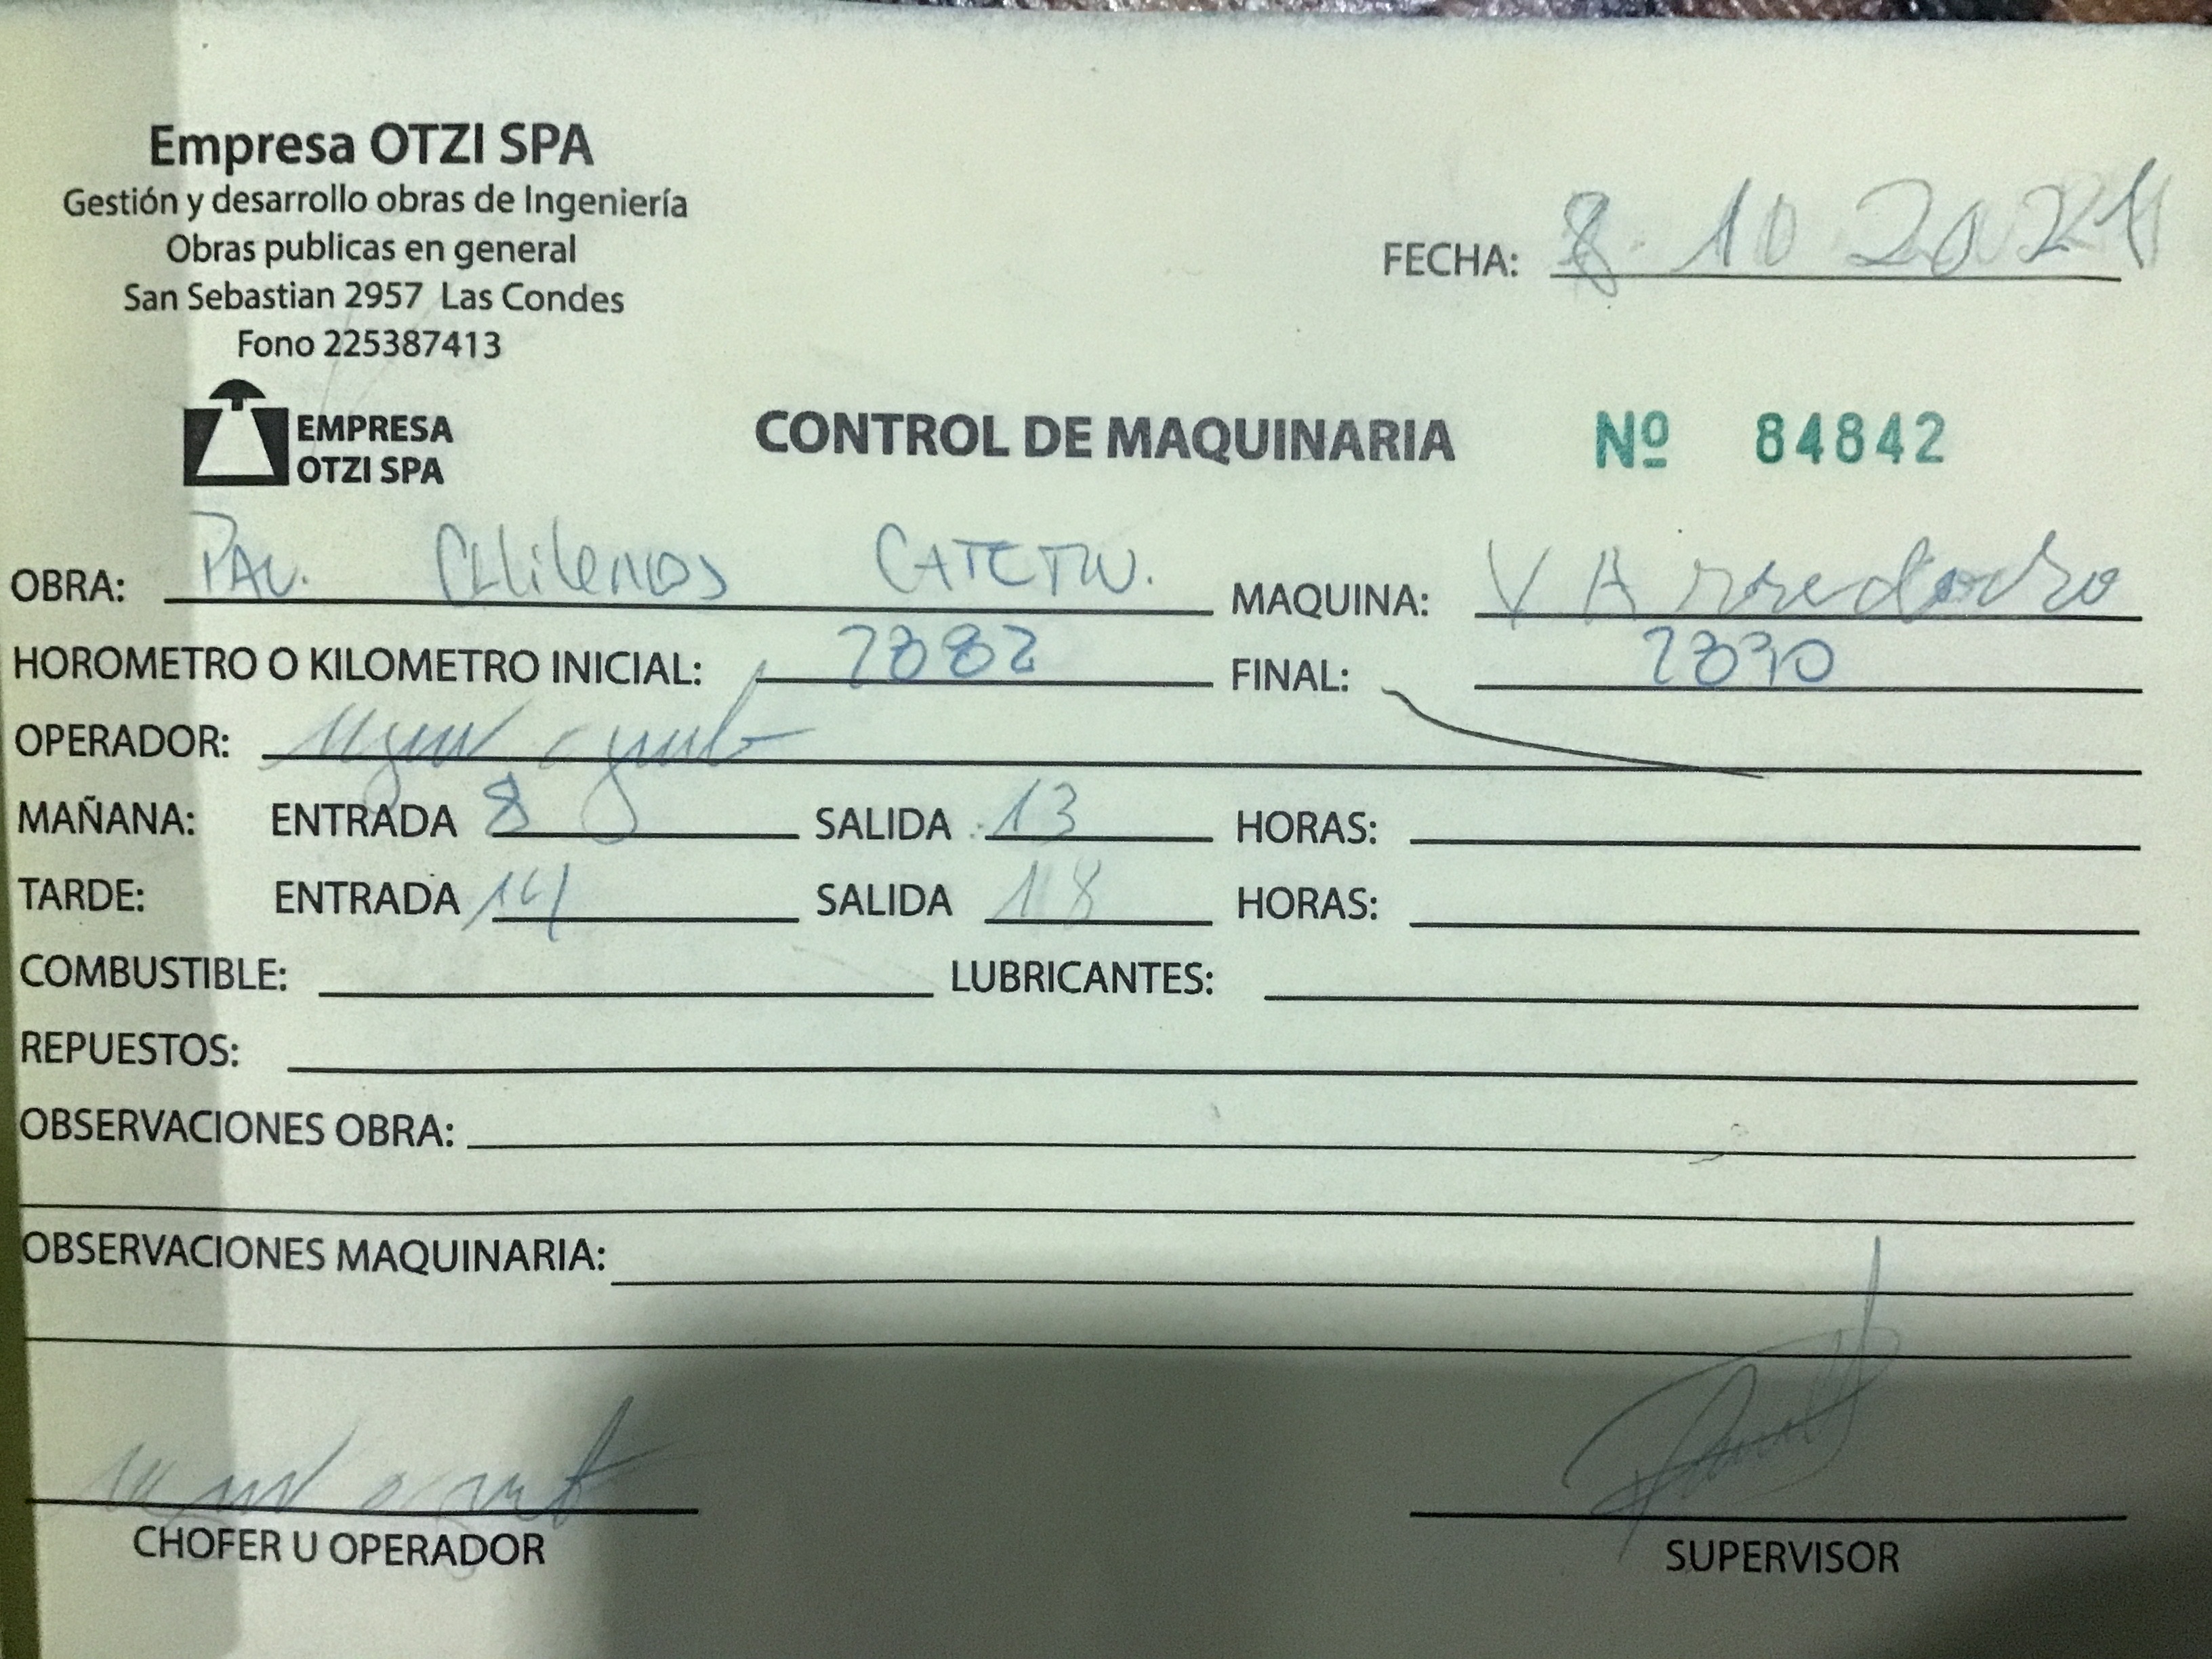 Empresa OTZI SPA
Gestión y desarrollo obras de Ingeniería
Obras publicas en general
San Sebastian 2957 Las Condes
Fono 225387413
FECHA: 8. 10 2024
EMPRESA
OTZI SPA
CONTROL DE MAQUINARIA Nº 84842
OBRA: PAV. CHilenos MAQUINA: V
HOROMETRO O KILOMETRO INICIAL: 7882 FINAL: 7890
OPERADOR:
MAÑANA: ENTRADA 8 SALIDA 13 HORAS:
TARDE: ENTRADA 14 SALIDA 18 HORAS:
COMBUSTIBLE: LUBRICANTES:
REPUESTOS:
OBSERVACIONES OBRA:
OBSERVACIONES MAQUINARIA:
CHOFER U OPERADOR
SUPERVISOR